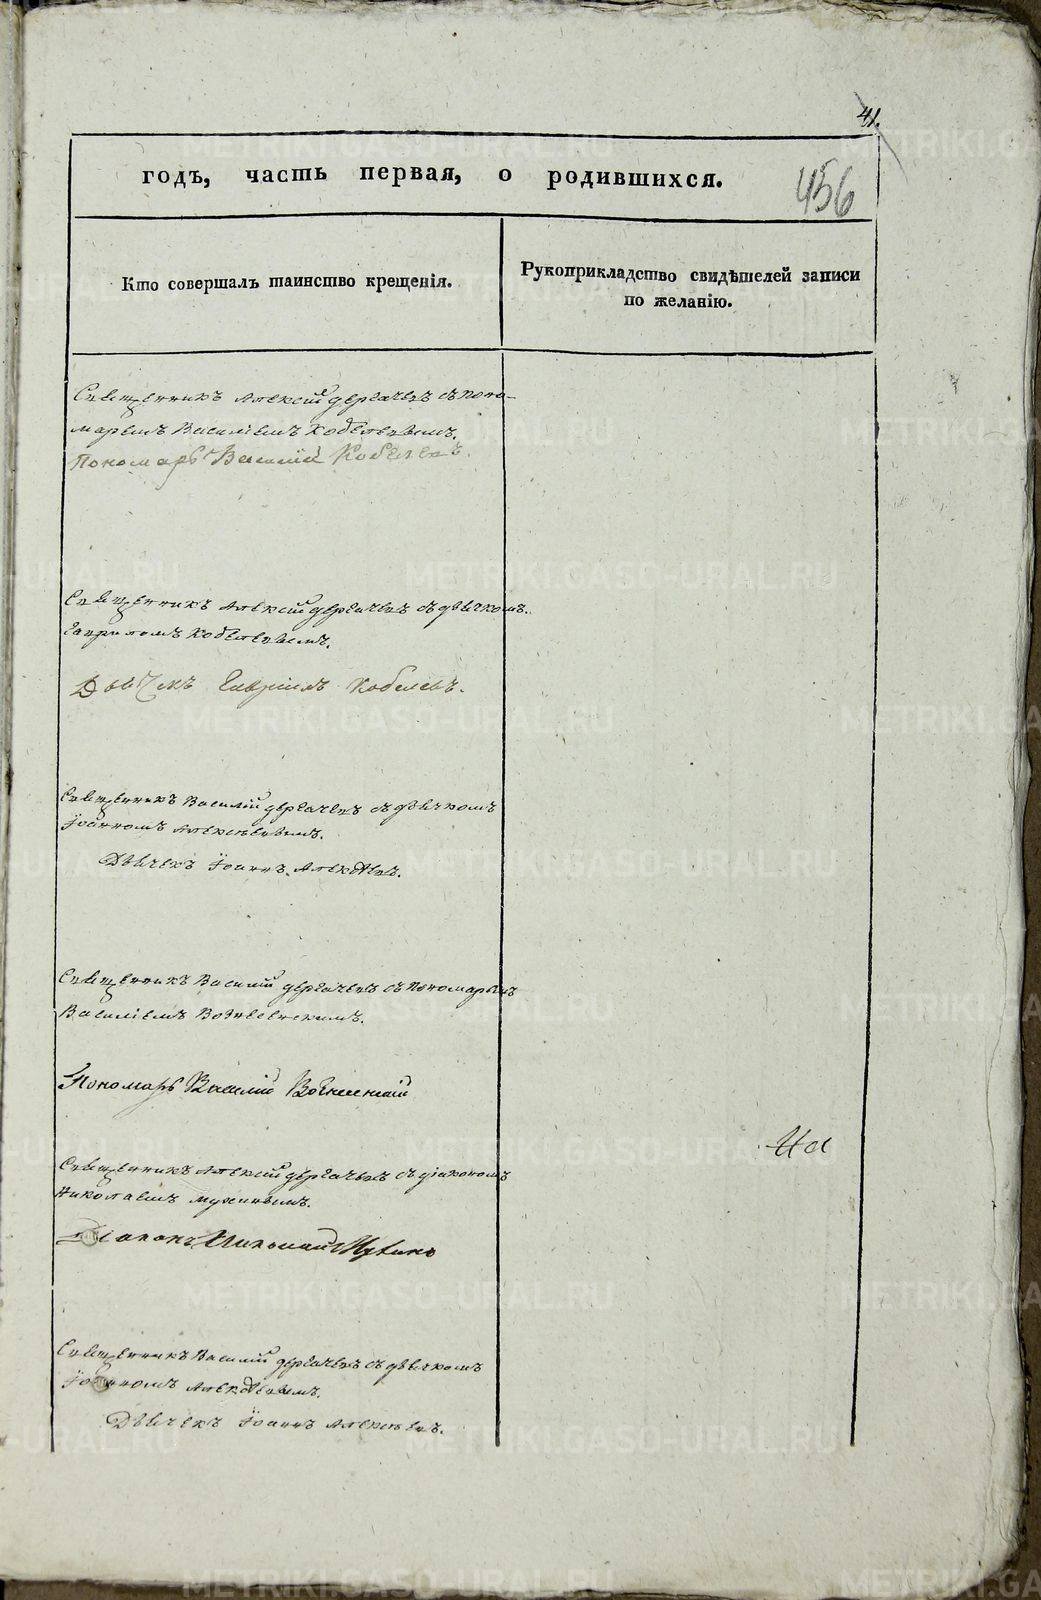 41.
годъ, часть первая, о родившихся.
456
Кто совершалъ таинство крещенія.
Рукоприкладство свидѣтелей записи
по желанію.
Священникъ Алексій Дергачевъ съ поно-
маремъ Василіемъ Кобелевымъ.
Пономарь Василій Кобелевъ.
Священникъ Алексій Дергачевъ съ дьячкомъ
Гавриломъ Кобелевымъ.
Дьячекъ Гавріилъ Кобелевъ.
Священникъ Василій Дергачевъ съ дьячкомъ
Іоанномъ Алексѣевымъ.
Дьячекъ Іоаннъ Алексѣевъ.
Священникъ Василій Дергачевъ съ пономаремъ
Василіемъ Вознесенскимъ.
Пономарь Василій Вознесенскій
Священникъ Алексій Дергачевъ съ діакономъ
Николаемъ Мухинымъ.
Діаконъ Николай Мухинъ
Священникъ Василій Дергачевъ съ дьячкомъ
Іоанномъ Алексѣевымъ.
Дьячекъ Іоаннъ Алексѣевъ.
METRIKI.GASO-URAL.RU